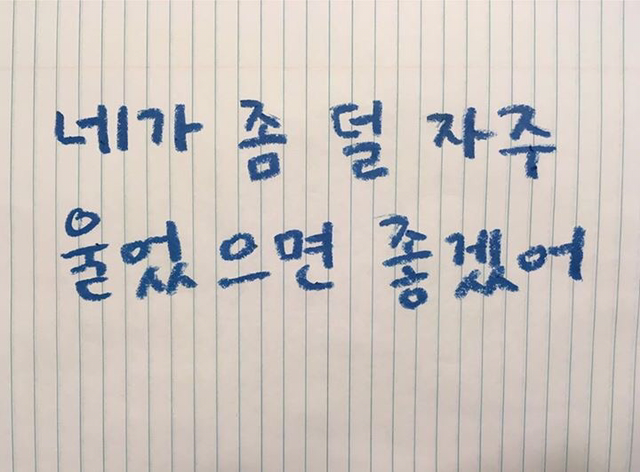 네가 좀 덜 자주
울었으면 좋겠어